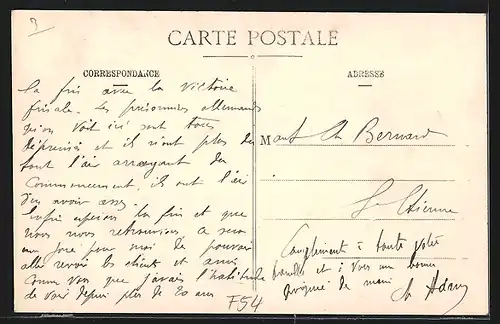 CARTE POSTALE
CORRESPONDANCE
ADRESSE
la fin avec la Victoire
finale. Les prisonniers allemands
qu'on voit ici sont tous
déprimés et ils n'ont plus du
tout l'air arrogant du
Commencement, ils ont l'air
d'en avoir assez.
Enfin espérons la fin et que
nous nous retrouvions, ce sera
une joie pour moi de pouvoir
aller revoir les clients et amis
Comme vous que j'avais l'habitude
de voir depuis plus de 20 ans
M Ch Bernard
St Etienne
Compliments à toute votre
famille et à vous une bonne
poignée de main
Ch
F54